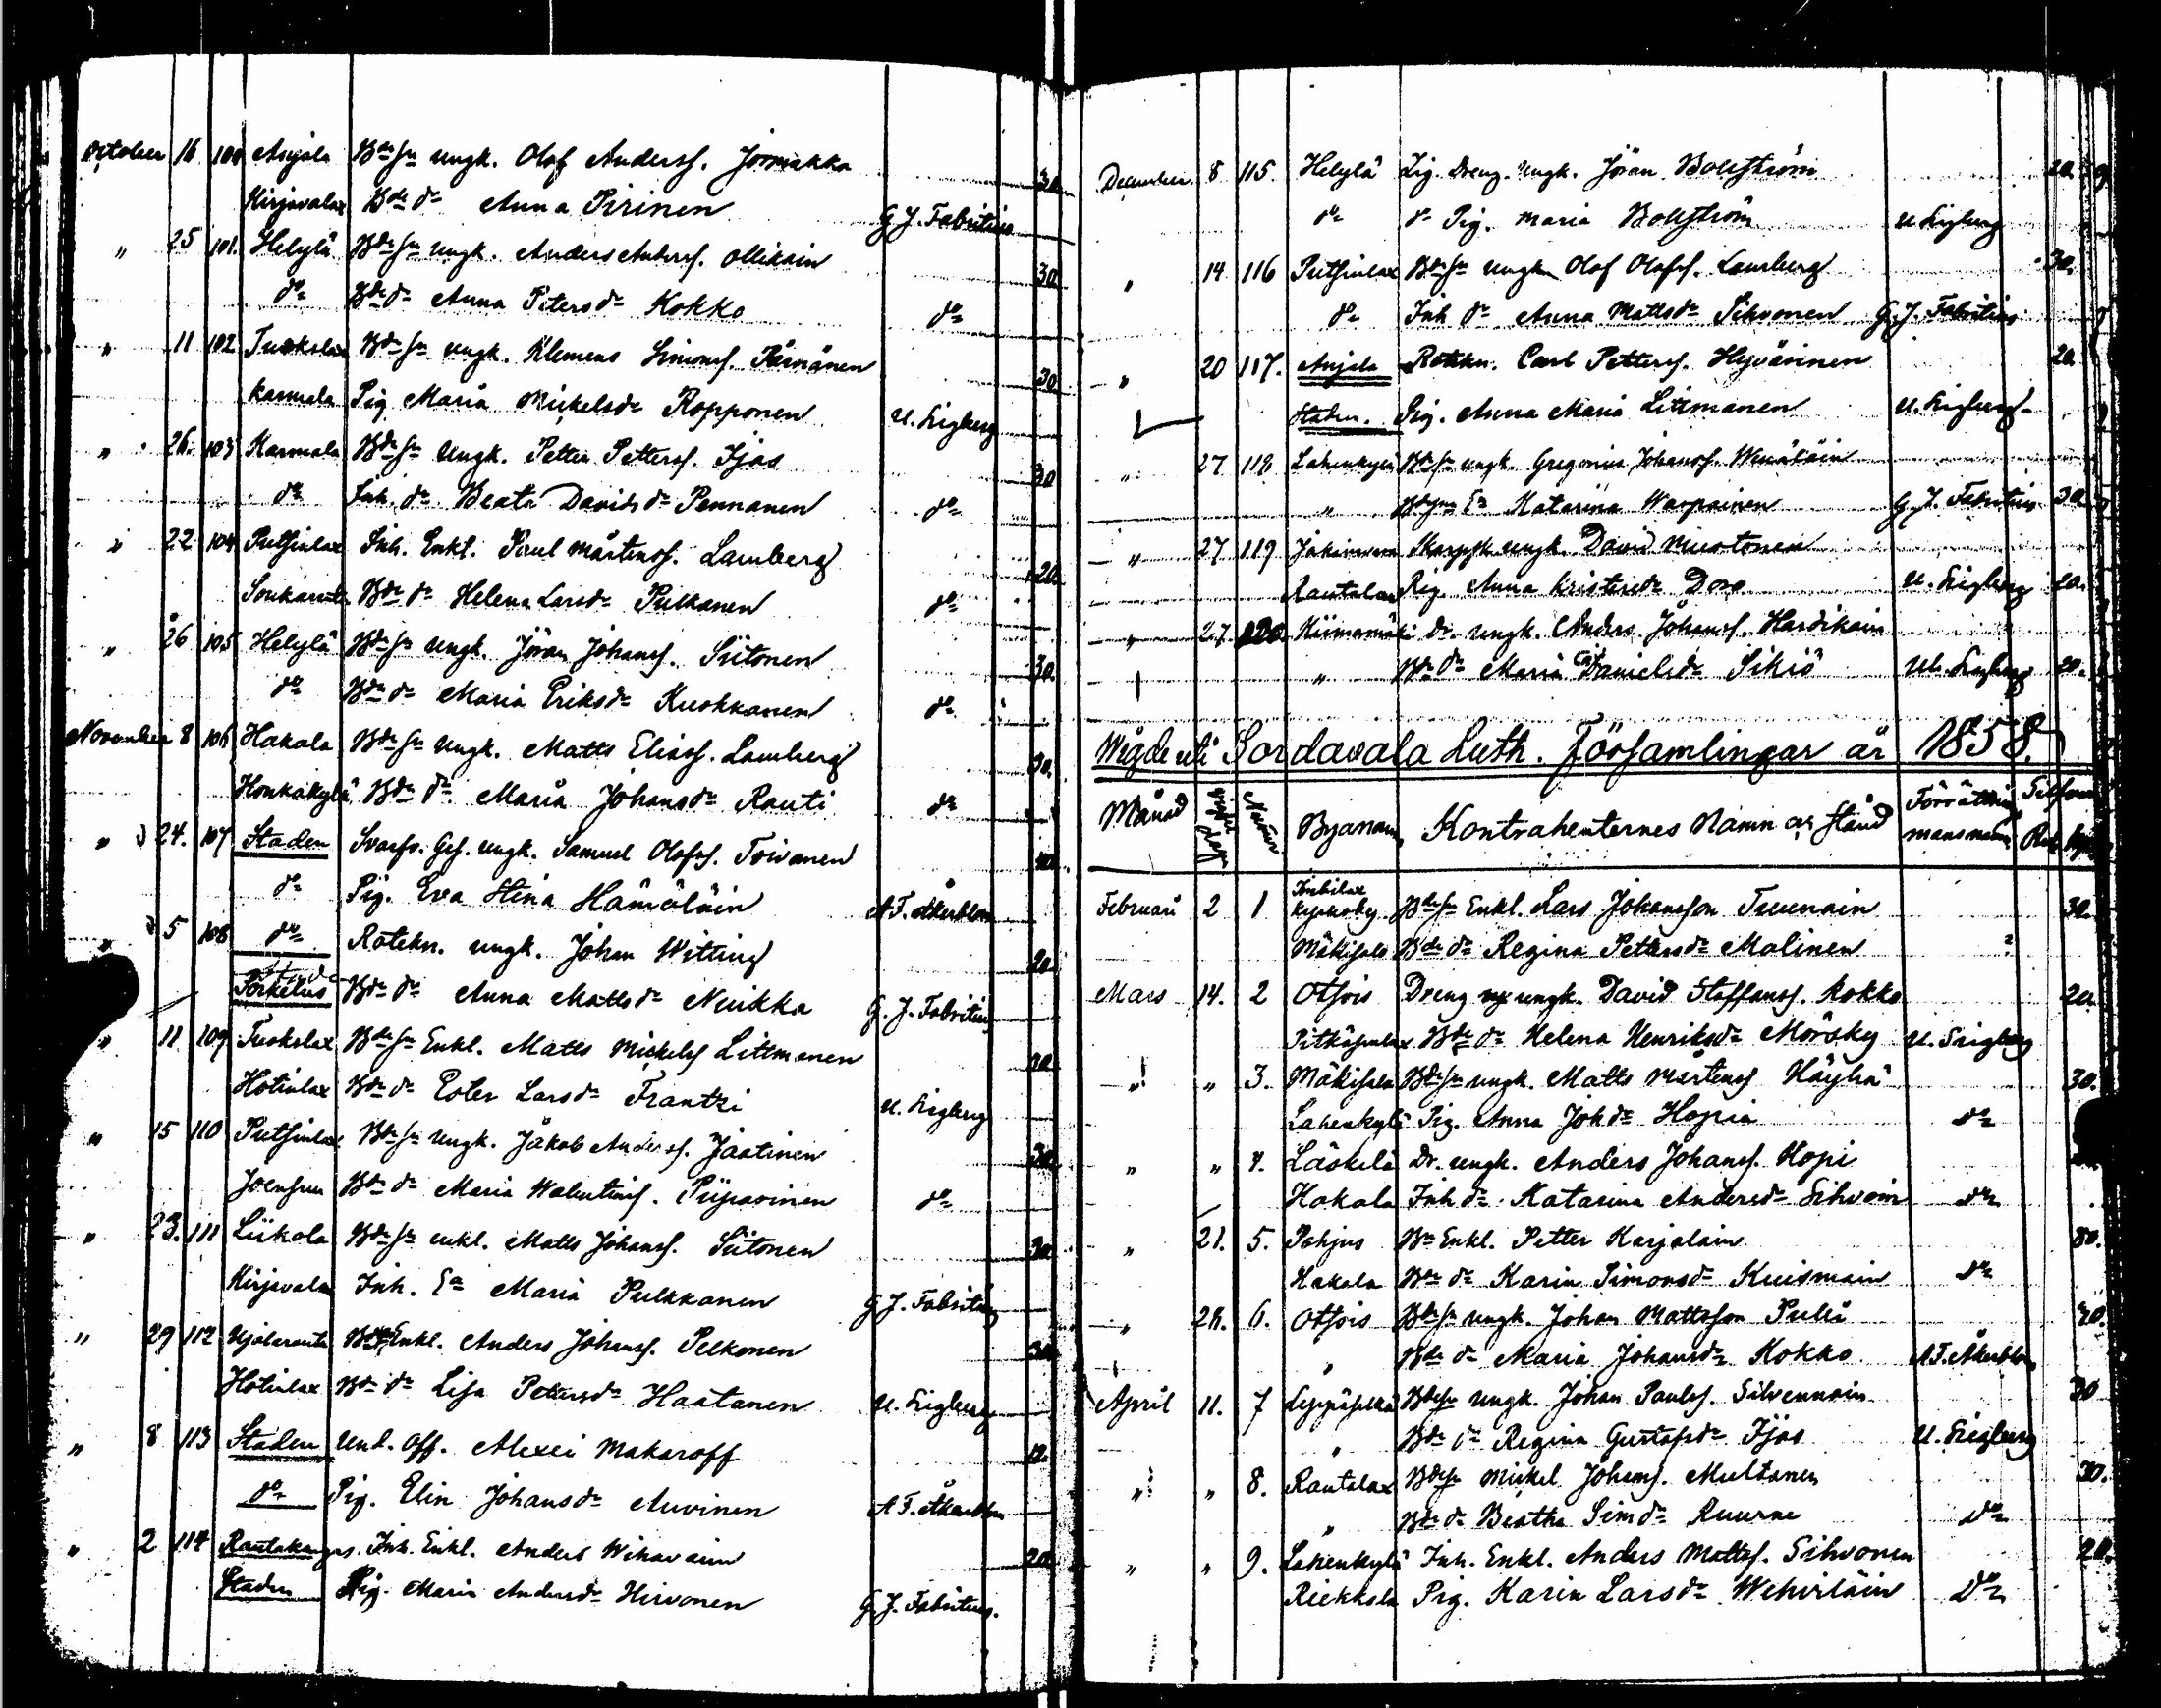 October 16 100 Anjala Bde sn ungk. Olof Anderss. Jormakka 30
Kirjavalax Bde dr Anna Pirinen G. J. Fabritius
" 25 101. Helylä Bde sn ungk. Anders Anderss. Ollikain 30
do Bde dr Anna Petersdr Kokko do
" 11 102 Tuokslax Bde sn ungk. Klemens Simonss. Pärnänen 30
Karmala Pig Maria Mickelsdr Ropponen U. Sigberg
" 26. 103 Karmala Bde sn Ungk. Petter Petterss. Ijäs 30
do Inh. dr Beata Davidsdr Pennanen do
" 22 104 Putsinlax Inh. Enkl. Paul Mårtenss. Lamberg 20
Bde dr Helena Larsdr Pulkanen do
" 26 105 Helylä Bde sn ungk. Jöran Johanss. Siitonen 30.
do Bde dr Maria Eriksdr Kuokkanen do
November 8 106 Hakala Bde sn ungk. Matts Eliass. Lamberg 30.
Honkakylä Bde dr Maria Johansdr Rauti do
" 24. 107 Staden Svarfv. Ges. ungk. Samuel Olofss. Toivanen
do Pig. Eva Stina Hämäläin A F. Åkerblom
" 5 108 do Rotekn. ungk. Johan Witting 20
Bde dr Anna Mattsdr Nuikka G. J. Fabritius
" 11 109 Tuokslax Bde sn Enkl. Matts Mickelss Littmanen 30
Hotinlax Bde dr Ester Larsdr Frantzi U. Sigberg
" 15 110 Putsinlax Bde sn ungk. Jakob Anderss. Jäätinen 30.
Joensuu Bde dr Maria Walentinss. Piiparinen do
" 23. 111 Liikola Bde sn enkl. Matts Johanss. Siitonen 30.
Kirjavalax Inh. Ea Maria Pulkkanen G J. Fabritius
" 29 112 Enkl. Anders Johanss. Pelkonen 30
Hotinlax Bde dr Lisa Petersdr Haatanen U. Sigberg
" 8 113 Staden Und. Off. Alexei Makaroff 12.
do Pig. Elin Johansdr Auvinen A F. Åkerblom
" 2 114 Rautakangas. Inh. Enkl. Anders Wihavain 20
Staden Pig. Maria Andersdr Hirvonen G J. Fabritius.
December 8 115. Helylä Lig. Dreng. ungk. Jöran Bollström 20.
do dr Pig. Maria Bollström U Sigberg
" 14 116 Putsinlax Bde sn ungk Olof Olofss. Lamberg 30.
do Inh dr Anna Mattsdr Sihvonen G. J. Fabritius
" 20 117. Anjala Rotekn. Carl Petterss. Hyvärinen 20
Staden. Pig. Anna Maria Littmanen U. Sigberg
" 27 118 Lahenkylä Bde sn ungk. Gregorius Johanss. Wenäläin
" Ea Katarina Warpainen G. J. Fabritius 30
" 27 119 Jakimvara ungk. David Muotonen
Rautalax Pig. Anna Kristersdr Dovo U. Sigberg 20.
" 27. 120 Kiimamäki dr. ungk. Anders Johanss. Hardikain
" Bde dr Maria Danielsdr Sikiö U. Sigberg 20.
Wigde uti Sordavala Luth. Församlingar år 1858.
Månad Vigsel dag Numer Byanam, Kontrahenternes Namn och stånd Förrättnings mansnamn
Februari 2 1 Kyrkoby Bde sn Enkl. Lars Johansson Tuunain 30.
Mäkisalo Bde dr Regina Pettersdr Malinen
Mars 14. 2 Otsois Dreng ungk. David Staffanss. Kokko 20
Bde dr Helena Henriksdr Mörsky U. Sigberg
" " 3. Mäkisalo Bde sn ungk. Matts Mårtenss Häyhä 30.
Lahenkylä Pig. Anna Joh dr Hopia do
" " 4. Läskelä Dr. ungk. Anders Johanss. Hopi
Hakala Inh dr Katarina Andersdr Sihvoin do
" 21. 5. Pohjus Bn Enkl. Petter Karjalain 30.
Hakala Bde dr Karin Simonsdr Kuismain do
" 28. 6. Otsois Bde sn ungk. Johan Mattsson Pulli 20.
" Bde dr Maria Johansdr Kokko A F. Åkerblom
April 11. 7 Leppäselkä Bde sn ungk. Johan Paulss. Silvennoin 30
" Bde dr Regina Gustafsdr Ijäs U. Sigberg
" " 8. Rautalax Bde sn Mickel Johanss. Multanen 30.
" Bde dr Beatha Simdr Ruurne do
" " 9. Lahenkylä Inh. Enkl. Anders Mattss. Sihvonen 20.
Riekksla Pig. Karin Larsdr Wehviläin do